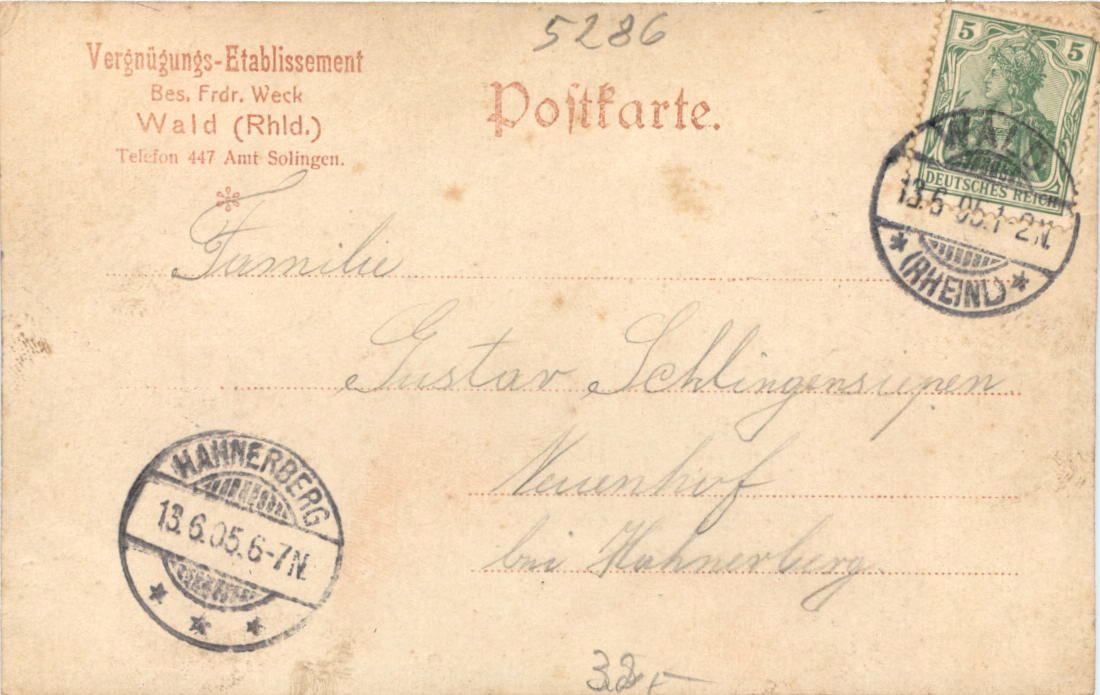 5286
Vergnügungs-Etablissement
Bes. Frdr. Weck
Wald (Rhld.)
Telefon 447 Amt Solingen.
Postkarte.
5 5
DEUTSCHES REICH
WALD
13.6.05.1-2N.
* (RHEINL) *
Familie
Gustav Schlingensiepen
Neuenhof
bei Hahnerberg.
HAHNERBERG
13.6.05.6-7N.
* * *
38,-